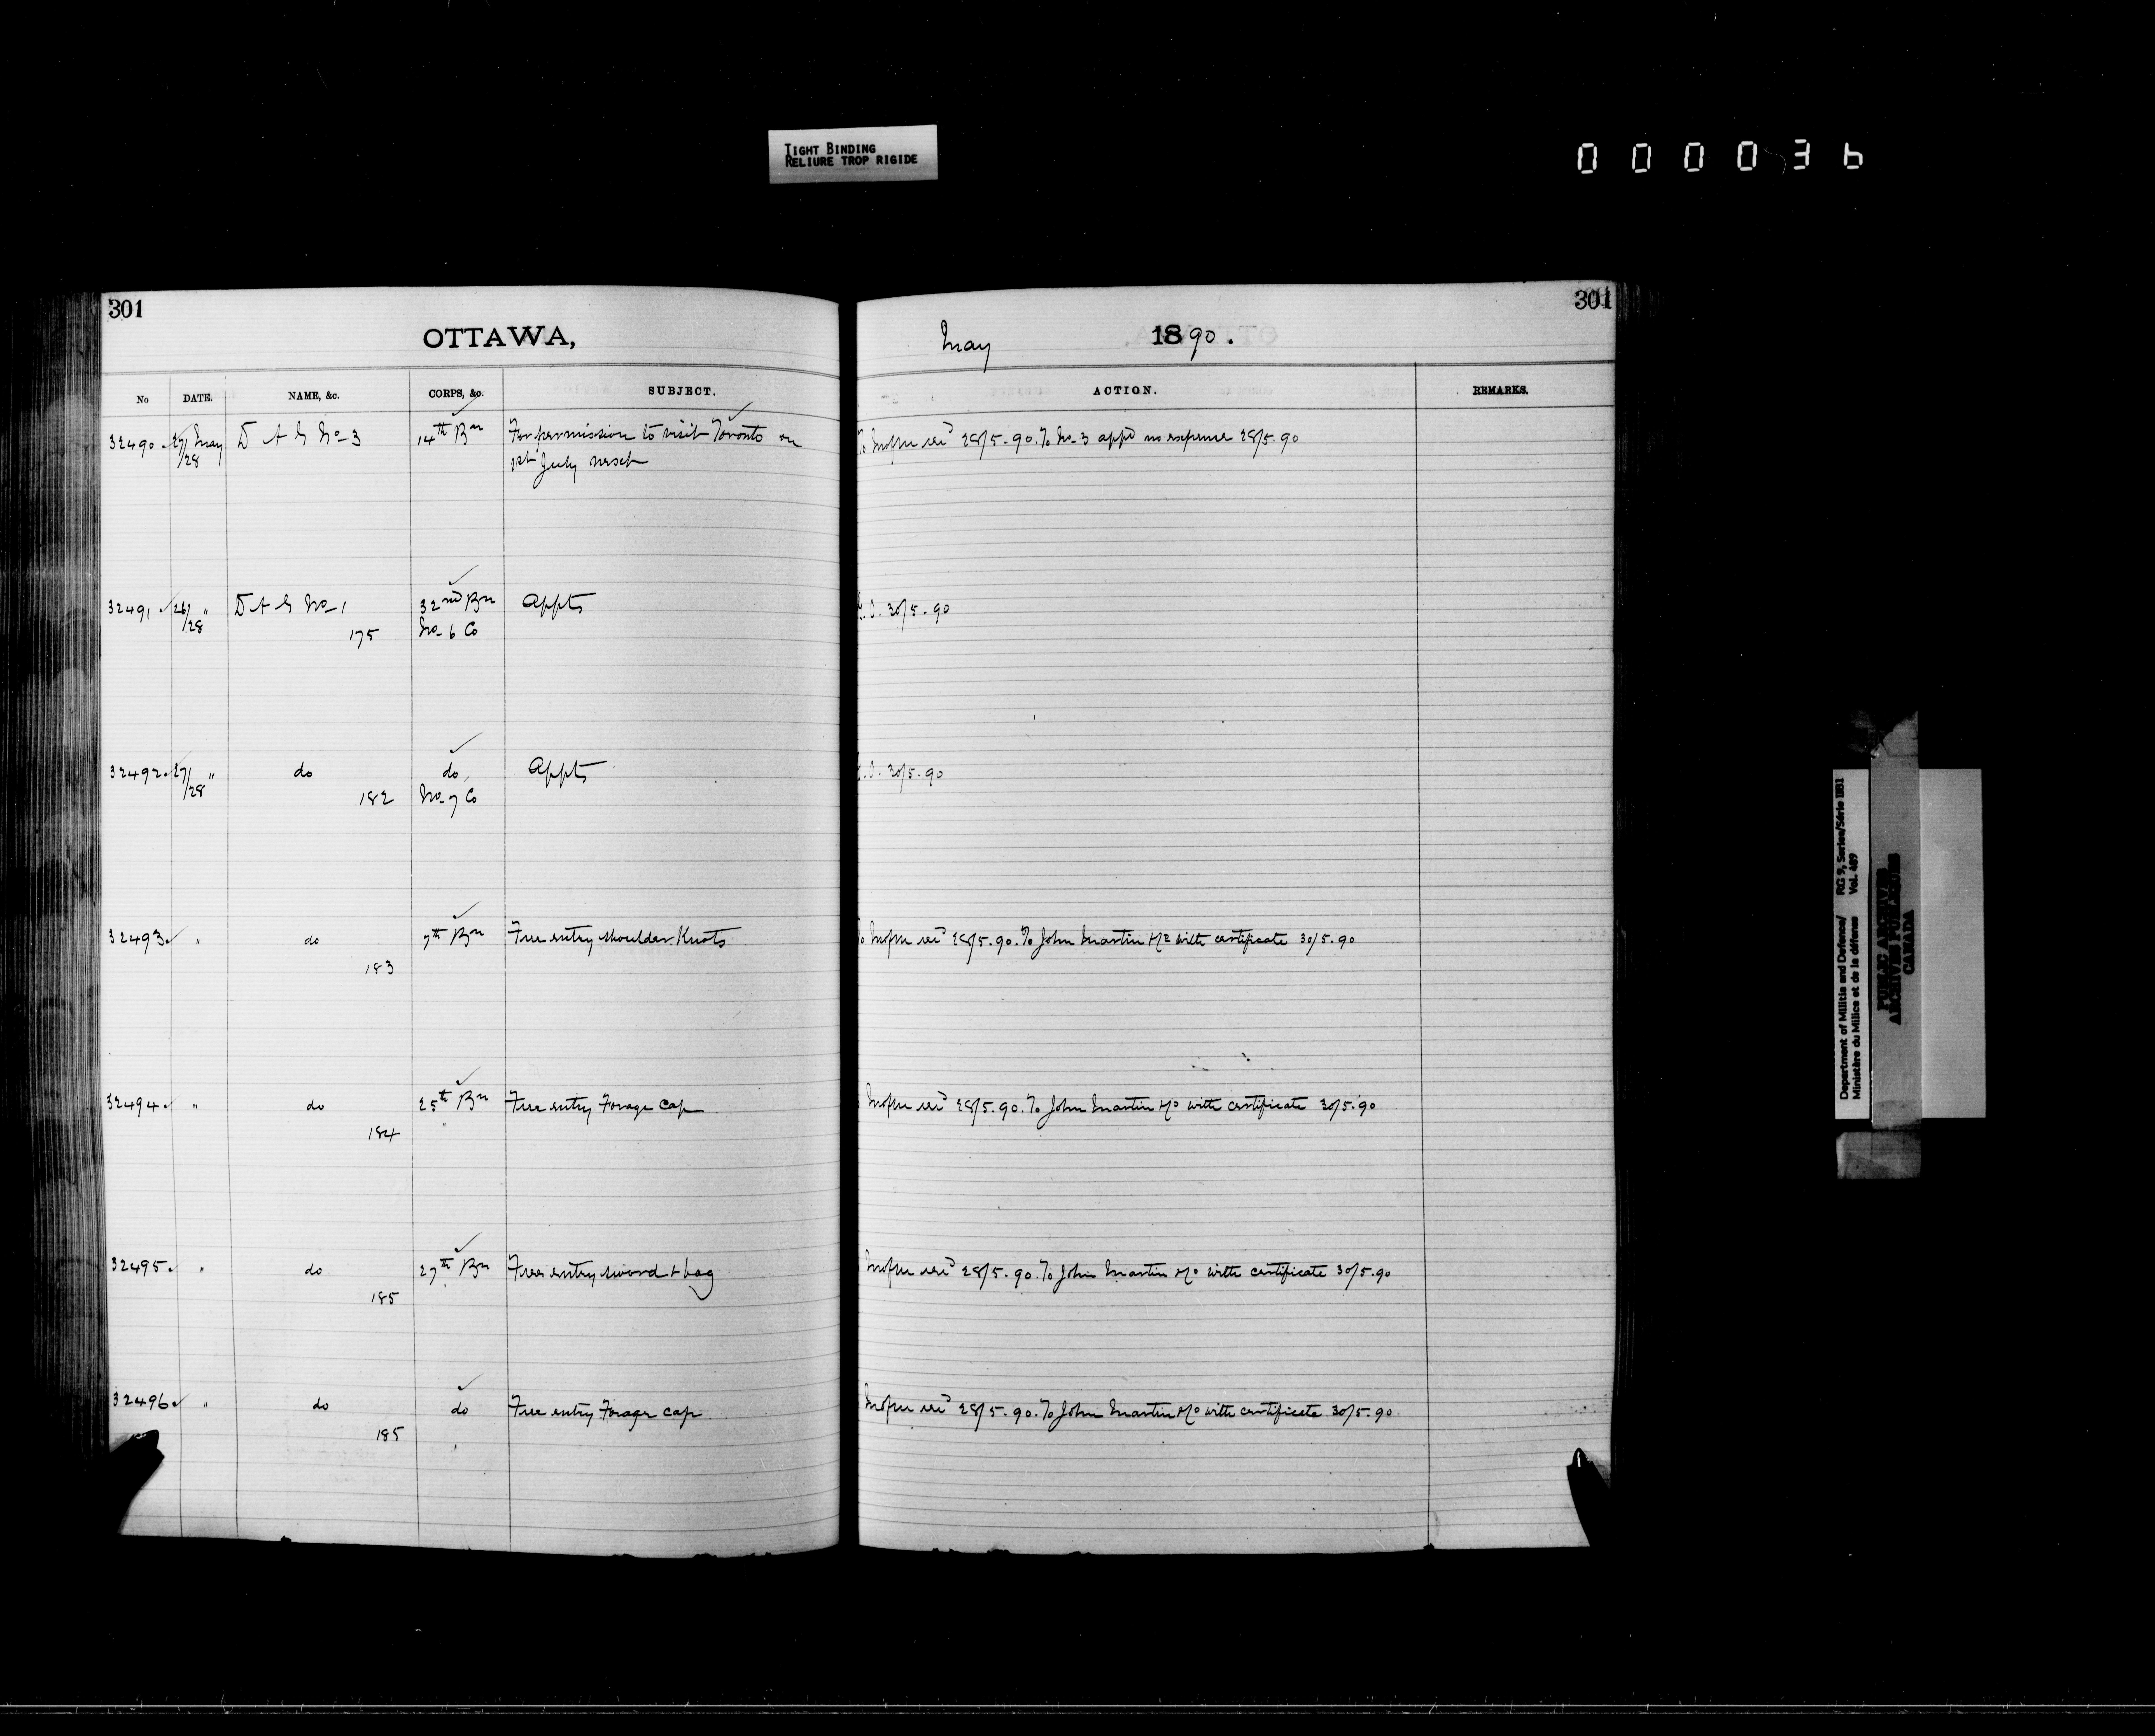 TIGHT BINDING
RELIURE TROP RIGIDE
000036
301
OTTAWA,
No DATE. NAME, &c. CORPS, &c. SUBJECT.
32490 27/28 May D A G No 3 14th Bn For permission to visit Toronto on
1st July next
32491 26/28 " D A G No 1 32nd Bn Appts
175 No 6 Co
32492 27/28 " do do Appts
182 No 7 Co
32493 " do 7th Bn Free entry shoulder Knots
183
32494 " do 25th Bn Free entry Forage Cap
184
32495 " do 27th Bn Free entry sword + bag
185
32496 " do do Free entry Forage Cap
185
301
May 1890.
ACTION. REMARKS.
28/5.90. To No 3 appd no expense 28/5.90
30/5.90
30/5.90
28/5.90. To John Martin with certificate 30/5.90
28/5.90. To John Martin with certificate 30/5.90
28/5.90. To John Martin with certificate 30/5.90
28/5.90. To John Martin with certificate 30/5.90
Department of Militia and Defence/ RG 9, Series/Série IIB1
Ministère du Milice et de la défense Vol. 489
PUBLIC ARCHIVES
ARCHIVES PUBLIQUES
CANADA